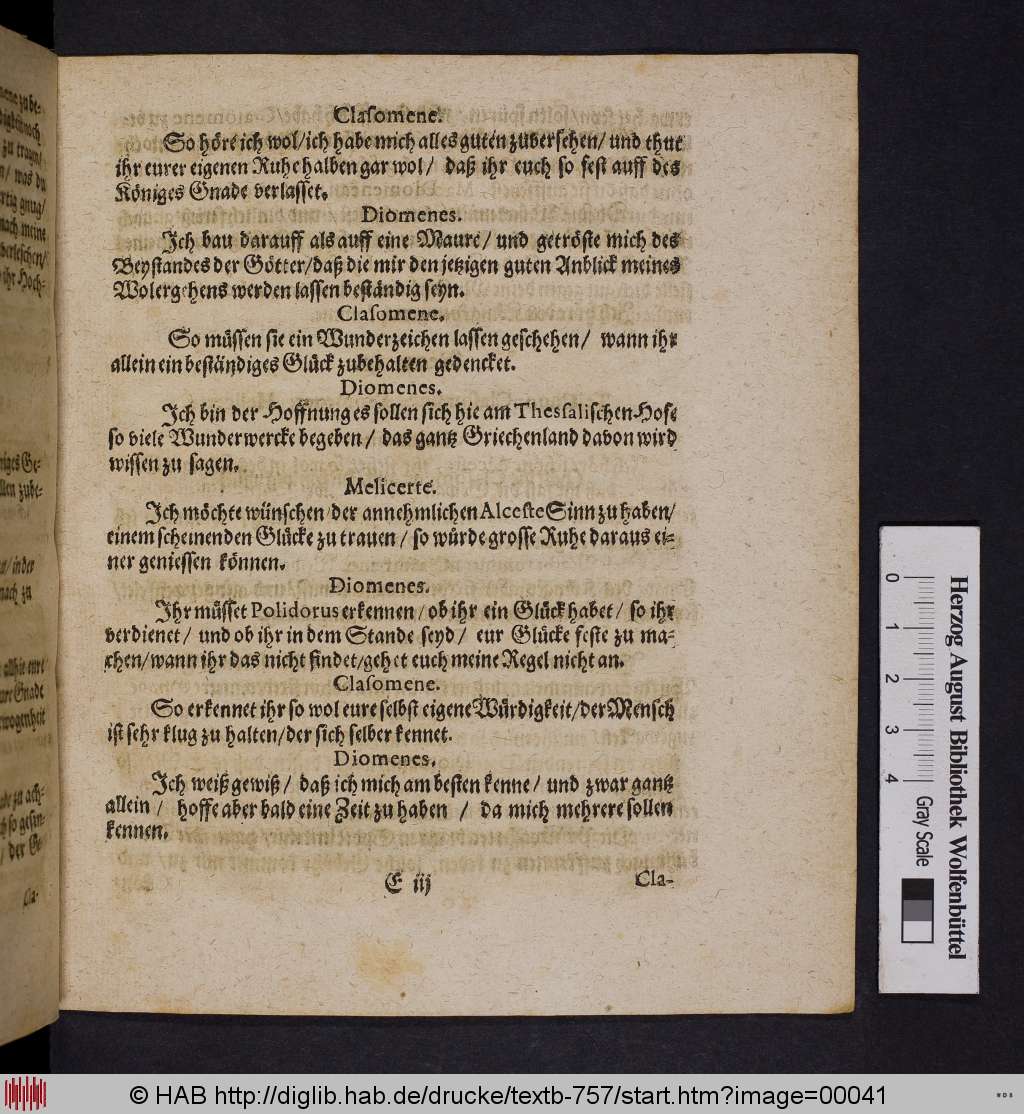 Clasomene.
So höre ich wol/ich habe mich alles guten zuversehen/ und thut
ihr eurer eigenen Ruhe halben gar wol/ daß ihr euch so fest auff des
Königes Gnade verlasset.
Diomenes.
Ich bau darauff als auff eine Maure/ und getröste mich des
Beystandes der Götter/daß die mir den jetzigen guten Anblick meines
Wolergehens werden lassen beständig seyn.
Clasomene.
So müssen sie ein Wunderzeichen lassen geschehen/ wann ihr
allein ein beständiges Glück zubehalten gedencket.
Diomenes.
Ich bin der Hoffnung es sollen sich hie am Thessalischen Hofe
so viele Wunderwercke begeben/ das gantz Griechenland davon wird
wissen zu sagen.
Melicerte.
Ich möchte wünschen der annehmlichen Alceste Sinn zu haben/
einem scheinenden Glücke zu trauen/ so würde grosse Ruhe daraus ei-
ner geniessen können.
Diomenes.
Ihr müsset Polidorus erkennen/ ob ihr ein Glück habet/ so ihr
verdienet/ und ob ihr in dem Stande seyd/ eur Glücke feste zu ma-
chen/wann ihr das nicht findet/gehet euch meine Regel nicht an.
Clasomene.
So erkennet ihr so wol eure selbst eigene Würdigkeit/der Mensch
ist sehr klug zu halten/der sich selber kennet.
Diomenes.
Ich weiß gewiß/ daß ich mich am besten kenne/ und zwar gantz
allein/ hoffe aber bald eine Zeit zu haben/ da mich mehrere sollen
kennen.
E iij
Cla-
Herzog August Bibliothek Wolfenbüttel
0 1 2 3 4
Gray Scale
© HAB http://diglib.hab.de/drucke/textb-757/start.htm?image=00041